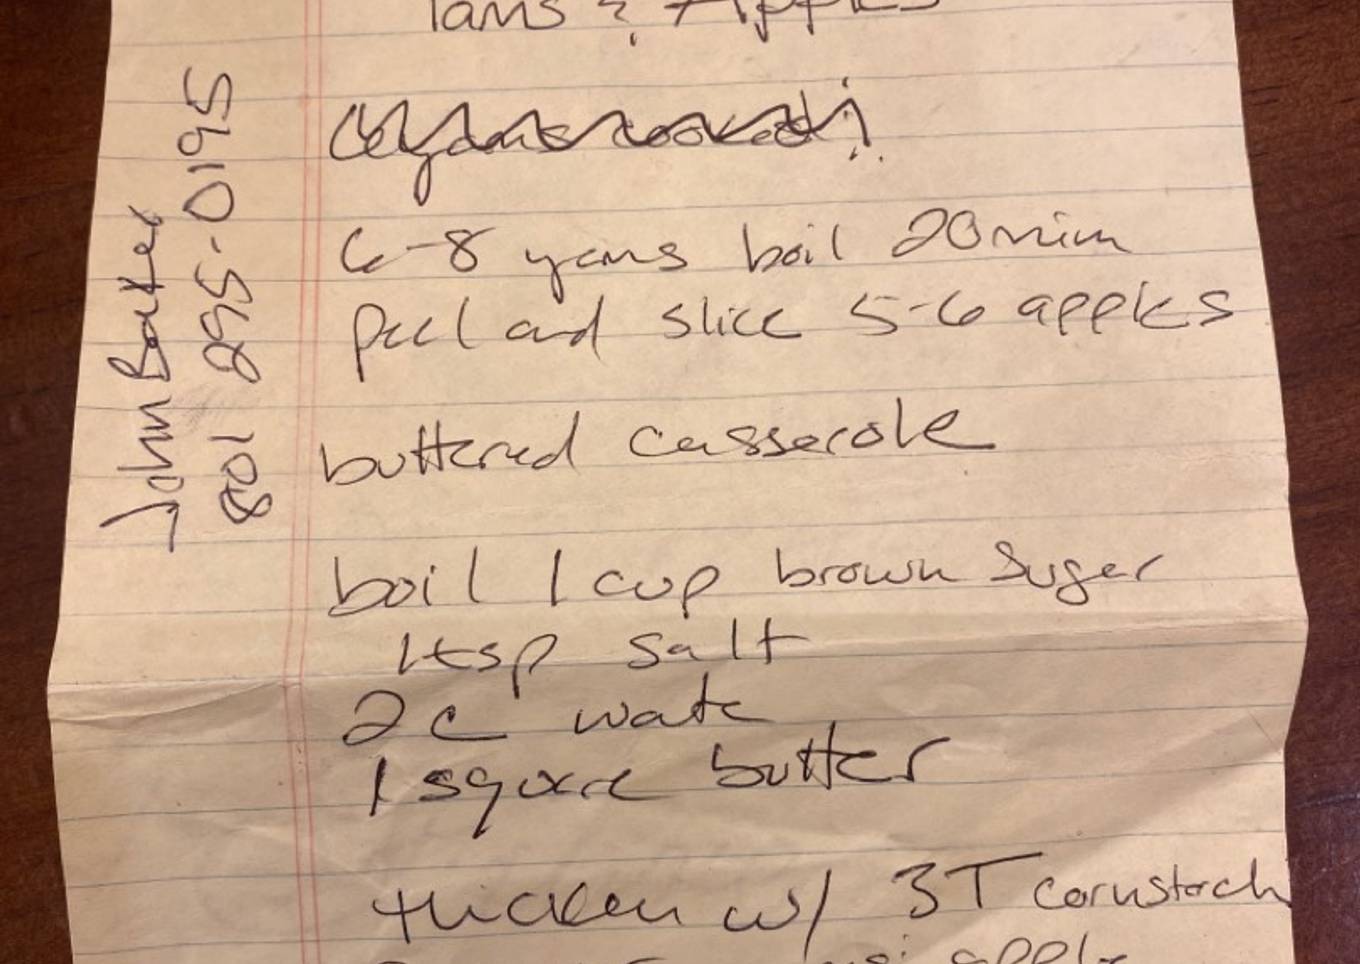 Yams & Apples
6-8 yams boil 20 min
peel and slice 5-6 apples
buttered casserole
boil 1 cup brown suger
1 tsp salt
2 c wate
1 square butter
thicken w/ 3T cornstarch
apple
John Bater
801 295-0195